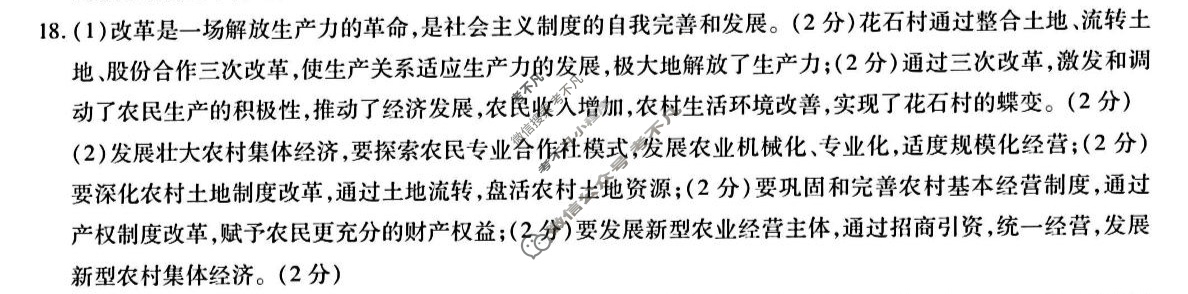 18.(1)改革是一场解放生产力的革命,是社会主义制度的自我完善和发展。(2分)花石村通过整合土地、流转土
地、股份合作三次改革,使生产关系适应生产力的发展,极大地解放了生产力;(2分)通过三次改革,激发和调
动了农民生产的积极性,推动了经济发展,农民收入增加,农村生活环境改善,实现了花石村的蝶变。(2分)
(2)发展壮大农村集体经济,要探索农民专业合作社模式,发展农业机械化、专业化,适度规模化经营;(2分)
要深化农村土地制度改革,通过土地流转,盘活农村土地资源;(2分)要巩固和完善农村基本经营制度,通过
产权制度改革,赋予农民更充分的财产权益;(2分)要发展新型农业经营主体,通过招商引资,统一经营,发展
新型农村集体经济。(2分)